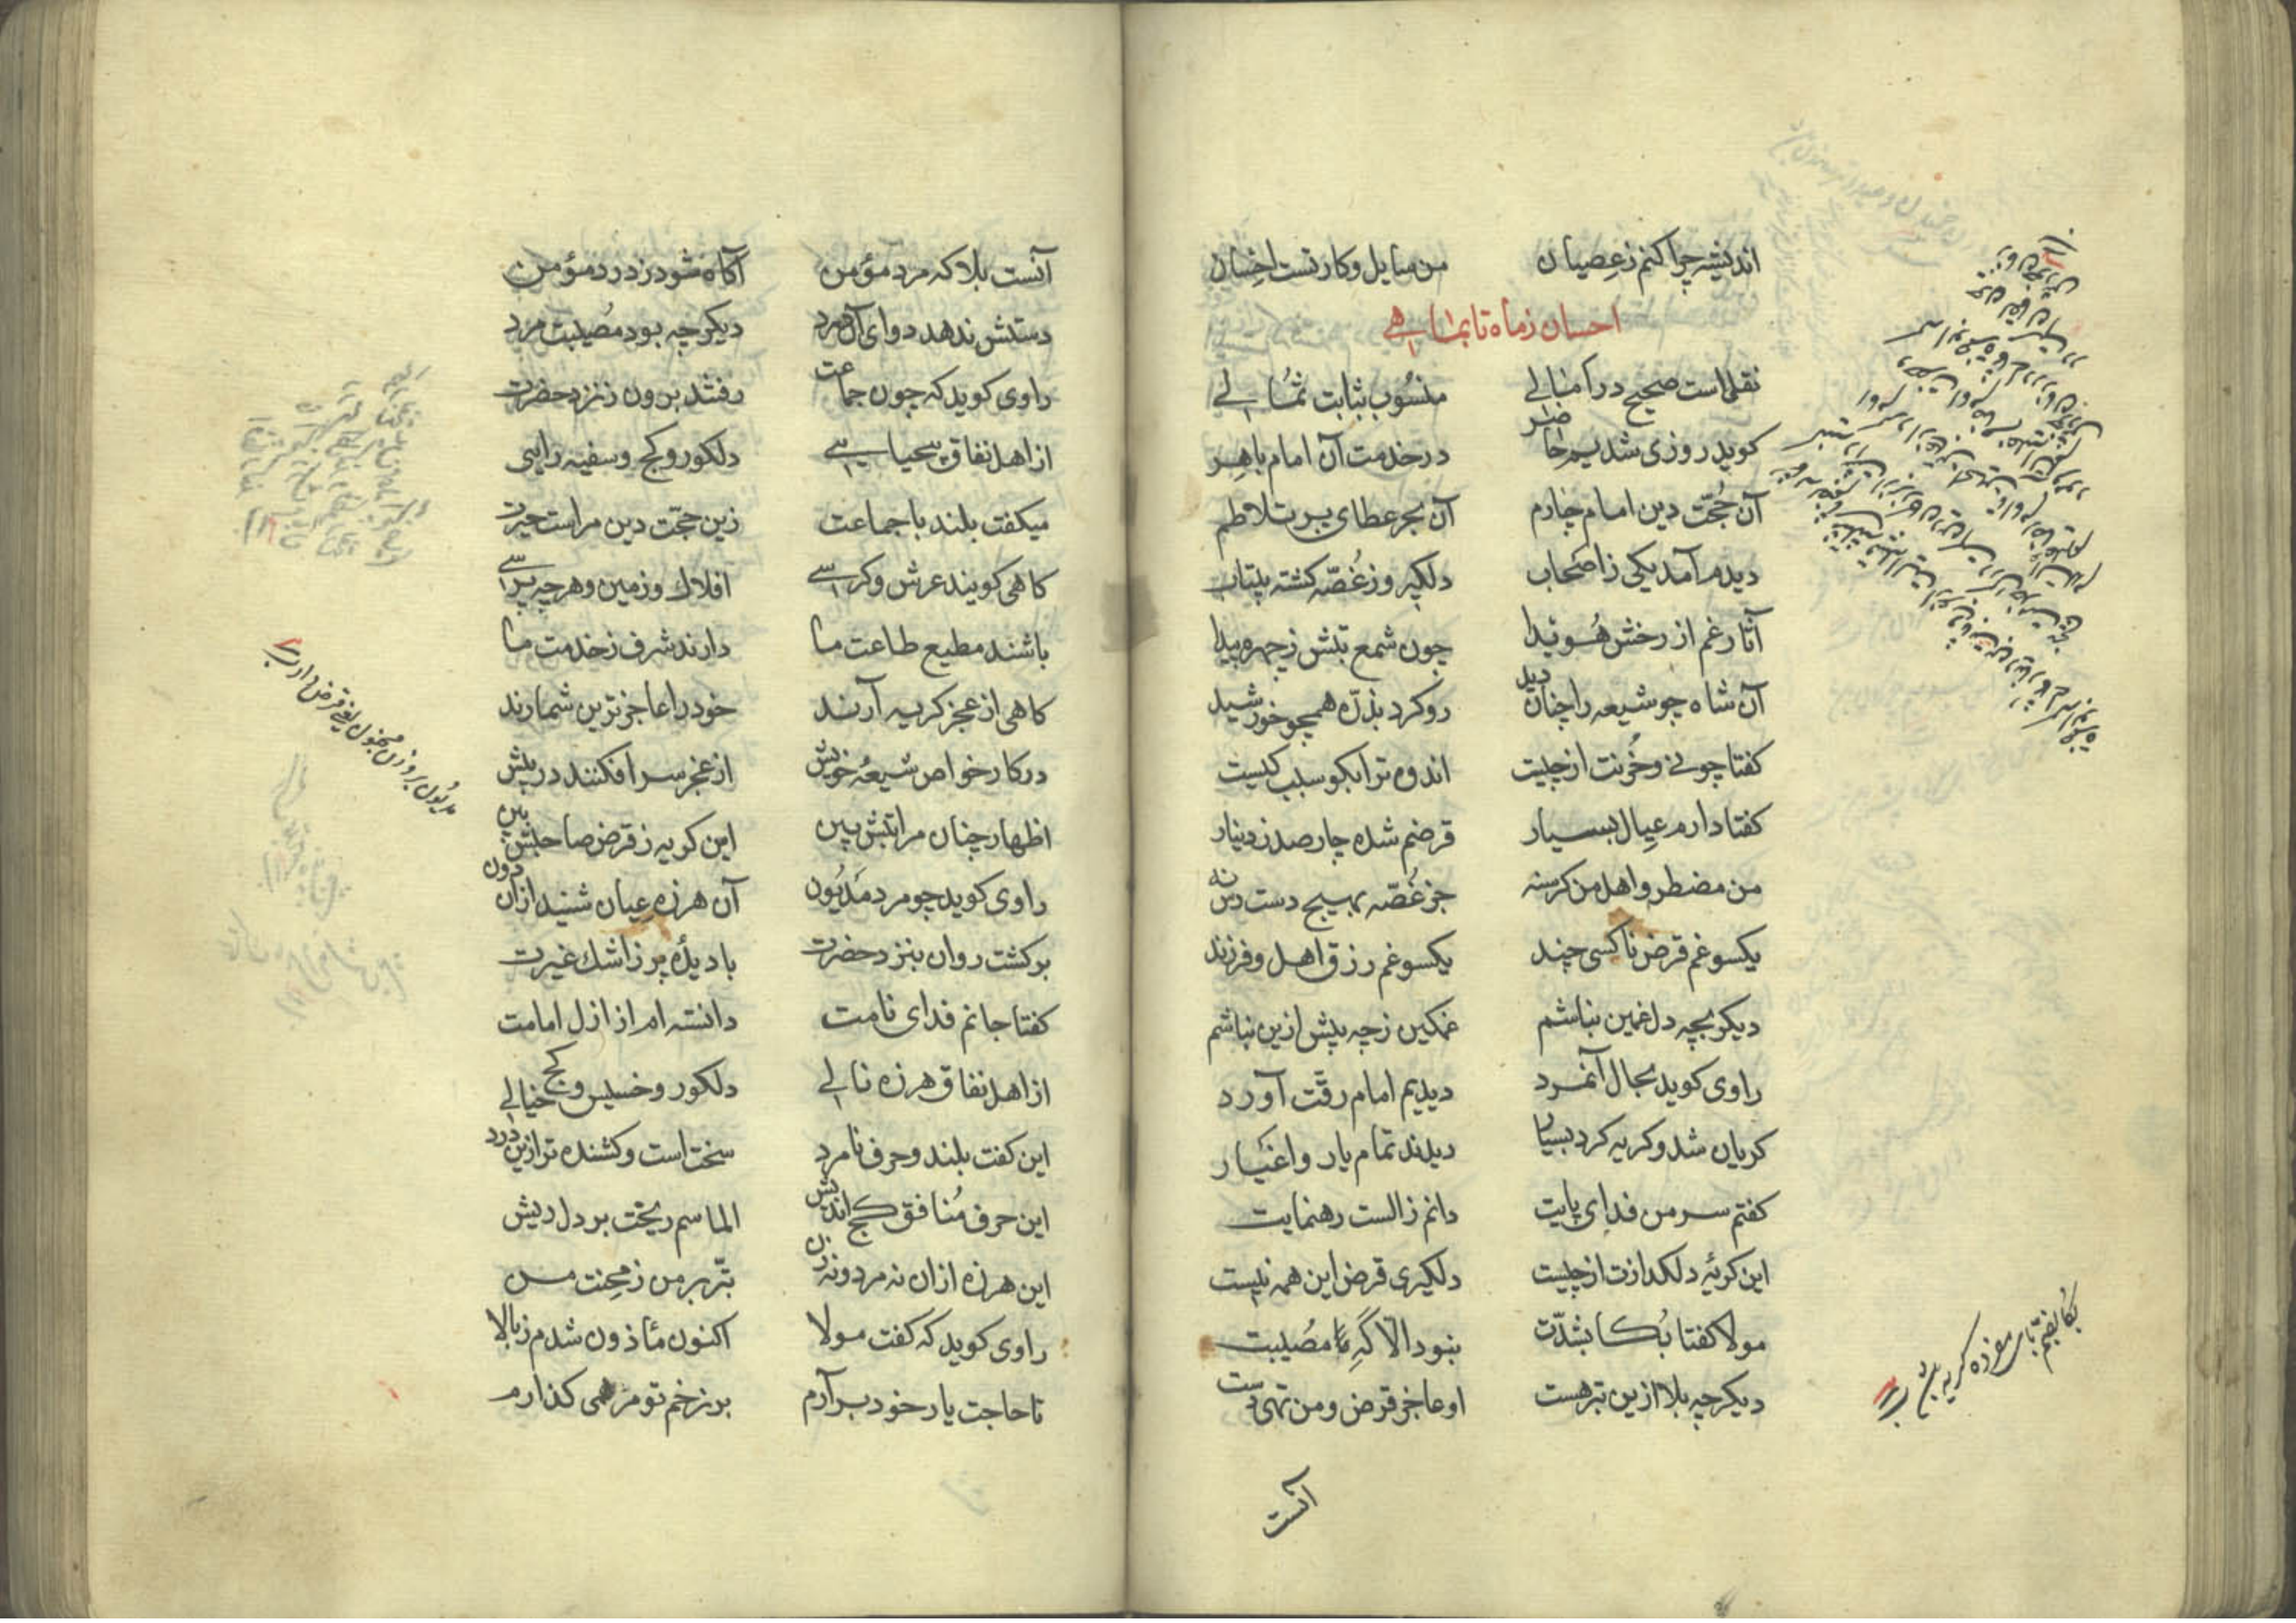 اندیشه چرا کنم ز عصیان من سایل و کار تست احسان
احسان ز ماه تا بماهی
نقل است صحیح در امالی منسوب بثابت ثمالی
کوید روزی شدیم حاضر در خدمت آن امام باهر
آن حُجّت دین امام چارم آن بحر عطای پر تلاطم
دیدم آمد یکی ز اصحاب دلکیر و ز غُصّه کشته بیتاب
آثار غم از رخش هُویدا چون شمع تبش ز چهره پیدا
آن شاه چو شیعه را چنان دید رو کرد بذرّه همچو خورشید
کفتا چونی و حُزنت از چیست اندوه ترا بکو سبب کیست
کفتا دارم عیال بسیار قرضم شده چارصد ز دینار
من مضطر و اهل من کرسنه جز غُصّه بهیچ دست رس نه
یکسو غم قرض ناکسی چند یکسو غم رزق اهل و فرزند
دیکر بچه دل غمین نباشم غمکین ز چه بیش ازین نباشم
راوی کوید بحال آنمرد دیدیم امام رقّت آورد
کریان شد و کریه کرد بسیار دیدند تمام یار و اغیار
کفتم سر من فدای پایت دانم ز الست رهنمایت
این کریهٔ دلکدازت از چیست دلکیری قرض این همه نیست
مولا کفتا بُکا بشدّت نبود الّا کَهِ مصیبت
دیکر چه بلا ازین بتر هست او عاجز قرض و من تهی دست
آنست
بکا بضم تای موحّده کریه
آنست بلا که مرد مؤمن آکاه شود ز درد مؤمن
دستش ندهد دوای آن درد دیکر چه بود مُصیبت مرد
راوی کوید که چون جماعت رفتند برون ز نزد حضرت
از اهل نفاق بیحیایی دلکور و کج و سفیه رایی
میکفت بلند با جماعت زین حجّت دین مراست حیرت
کاهی کویند عرش و کرسی افلاک و زمین و هر چه پرسی
باشند مطیع طاعت ما دارند شرف ز خدمت ما
کاهی از عجز کریه آرند خود را عاجزترین شمارند
در کار خواص شیعهٔ خویش از عجز سر افکنند در پیش
اظهار چنان مراتبش بین این کریه ز قرض صاحبش بین
راوی کوید چو مرد مَدیُون آن هرزه عیان شنید ازان دون
برکشت روان بنزد حضرت با دیدهٔ پر ز اشک غیرت
کفتا جانم فدای نامت دانسته ام از ازل امامت
از اهل نفاق هرزه نالی دلکور و خسیس و کج خیالی
این کفت بلند و حرف نامرد سخت است و کشنده تر ازین درد
این حرف مُنافق کج اندیش الماسم ریخت بر دل ریش
این هرزه ازان نه مرد و نه زن بتّر بر من ز محنت من
راوی کوید که کفت مولا اکنون مأذون شدم ز بالا
تا حاجت یار خود برآرم بر زخم تو مرهمی کذارم
مدیُون بر وزن مجنون یعنی قرض دار